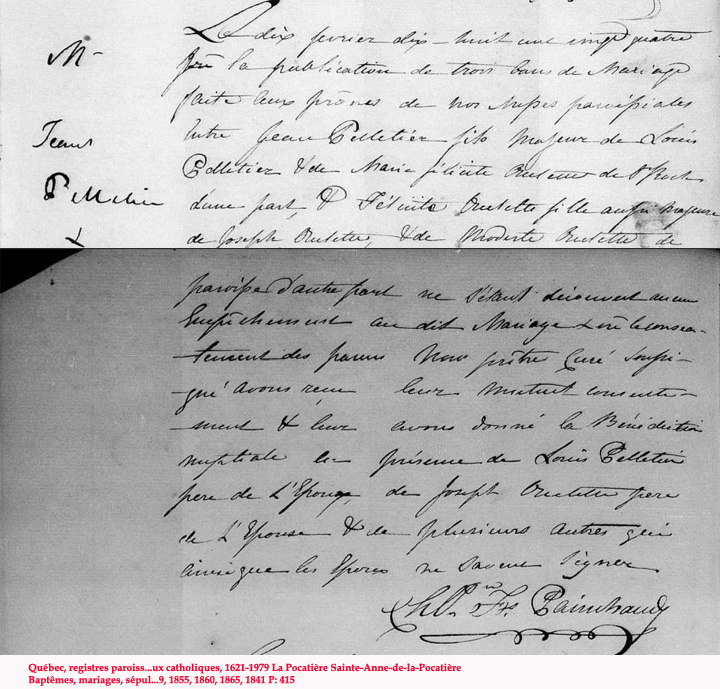 M-
Jean
Pelletier
&
Le dix fevrier dix-huit cent vingt quatre
la publication de trois bans de Mariage
faite aux prônes de nos Messes paroissiales
Entre Jean Pelletier fils Majeur de Louis
Pelletier & de Marie félicité Ouellette de St Roch
d'une part, & Félicité Ouellette fille aussi Majeure
de Joseph Ouellette, & de Modeste Ouellette de
paroisse d'autre part ne s'étant découvert aucun
Empêchement au dit Mariage & vu le consen-
-tement des parens Nous prêtre Curé soussi-
-gné avons recu leur Mutuel consente-
-ment & leur avons donné la Bénédiction
nuptiale en présence de Louis Pelletier
pere de L'Epoux, de Joseph Ouellette pere
de L'Epouse & de plusieurs autres qui
ainsi que les Epoux ne savent signer
Chs. Frs. Painchaud
Québec, registres paroiss...ux catholiques, 1621-1979 La Pocatière Sainte-Anne-de-la-Pocatière
Baptêmes, mariages, sépul...9, 1855, 1860, 1865, 1841 P: 415